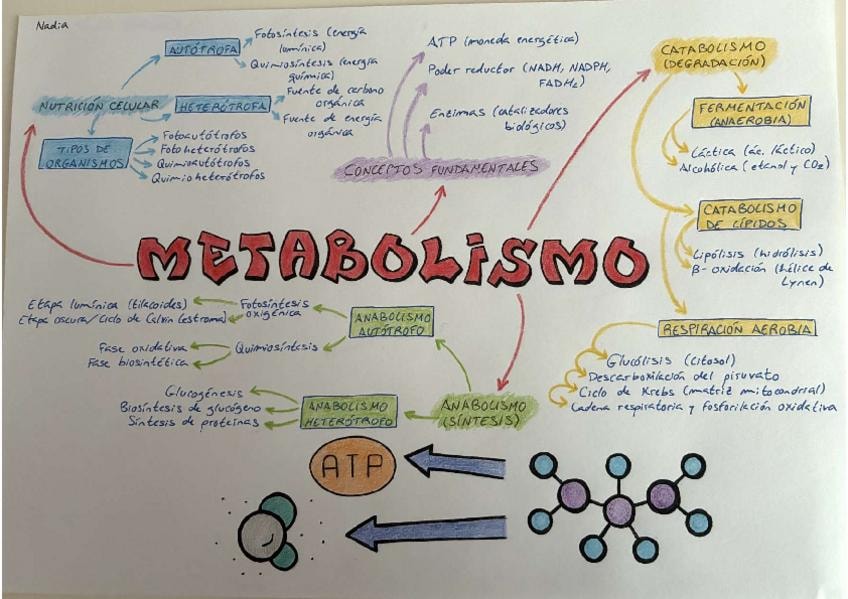 Nadia
AUTÓTROFA
Fotosíntesis (energía
lumínica)
Quimiosíntesis (energía
química)
NUTRICIÓN CELULAR
HETERÓTROFA
Fuente de carbono
orgánica
Fuente de energía
orgánica
TIPOS DE
ORGANISMOS
Fotoautótrofos
Fotoheterótrofos
Quimioautótrofos
Quimioheterótrofos
ATP (moneda energética)
Poder reductor (NADH, NADPH,
FADH₂)
Enzimas (catalizadores
biológicos)
CONCEPTOS FUNDAMENTALES
CATABOLISMO
(DEGRADACIÓN)
FERMENTACIÓN
(ANAEROBIA)
Láctica (ác. láctico)
Alcohólica (etanol y CO₂)
CATABOLISMO
DE LÍPIDOS
Lipólisis (hidrólisis)
β-oxidación (hélice de
Lynen)
RESPIRACIÓN AEROBIA
Glucólisis (citosol)
Descarboxilación del piruvato
Ciclo de Krebs (matriz mitocondrial)
Cadena respiratoria y fosforilación oxidativa
METABOLISMO
Etapa lumínica (tilacoides)
Etapa oscura/Ciclo de Calvin (estroma)
Fotosíntesis
oxigénica
ANABOLISMO
AUTÓTROFO
Fase oxidativa
Fase biosintética
Quimiosíntesis
Glucogénesis
Biosíntesis de glucógeno
Síntesis de proteínas
ANABOLISMO
HETERÓTROFO
ANABOLISMO
(SÍNTESIS)
ATP